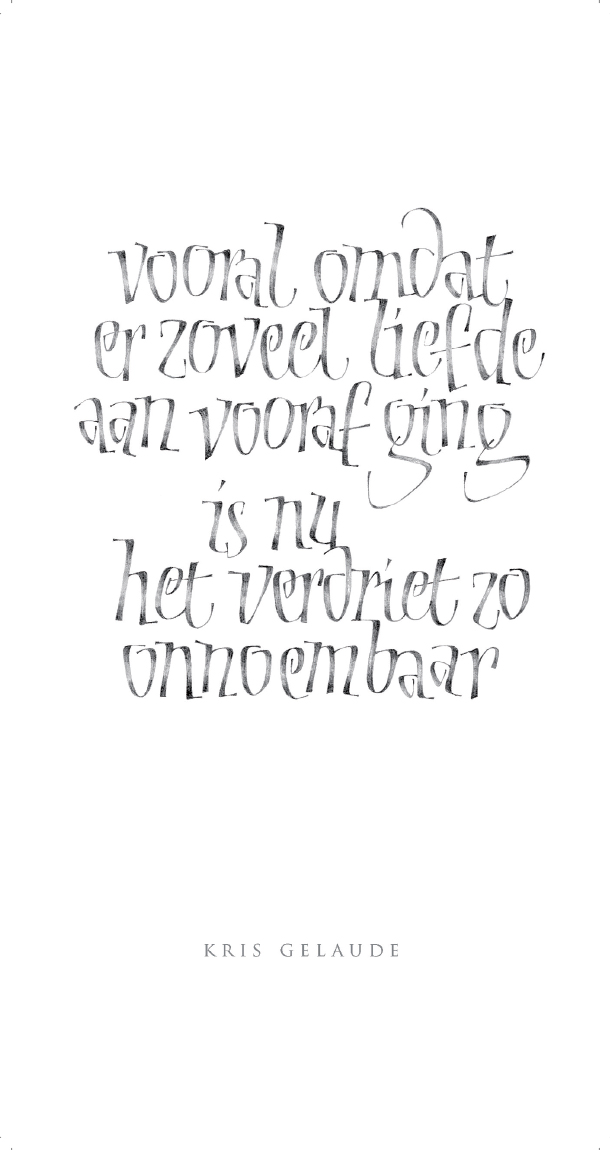 vooral omdat
er zoveel liefde
aan vooraf ging
is nu
het verdriet zo
onnoembaar
KRIS GELAUDE